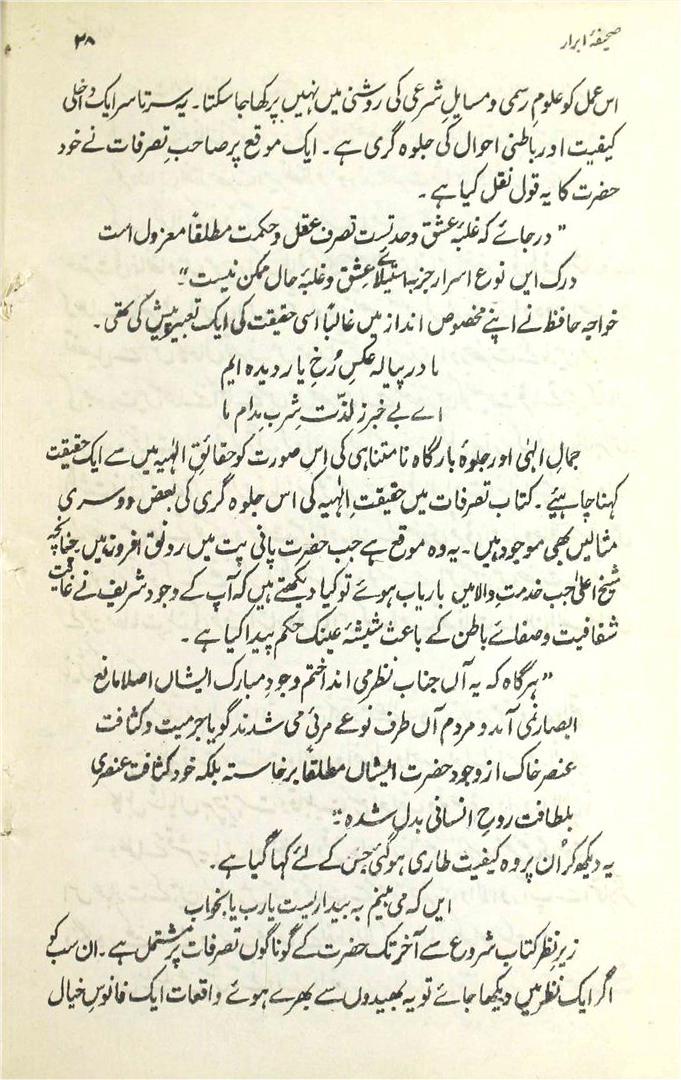 صحیفۂ ابرار
۲۸
اس عمل کو علومِ رسمی و مسایلِ شرعی کی روشنی میں نہیں پرکھا جا سکتا۔ یہ سرتاسر ایک داخلی
کیفیت اور باطنی احوال کی جلوہ گری ہے۔ ایک موقع پر صاحبِ تصرفات نے خود
حضرت کا یہ قول نقل کیا ہے۔
"در جائے کہ غلبۂ عشق و حدتست تصرف عقل و حکمت مطلقاً معزول است
درک ایں نوع اسرار جز بہ استیلائے عشق و غلبۂ حال ممکن نیست"۔
خواجہ حافظ نے اپنے مخصوص انداز میں غالباً اسی حقیقت کی ایک تعبیر پیش کی تھی۔
ما در پیالہ عکسِ رُخِ یار دیدہ ایم
اے بے خبر ز لذّتِ شربِ مدام ما
جمالِ الہٰی اور جلوۂ بارگاہ نامتناہی کی اس صورت کو حقائقِ الہٰیہ میں سے ایک حقیقت
کہنا چاہیئے۔ کتاب تصرفات میں حقیقتِ الہٰیہ کی اس جلوہ گری کی بعض دوسری
مثالیں بھی موجود ہیں۔ یہ وہ موقع ہے جب حضرت پانی پت میں رونق افروز ہیں چنانچہ
شیخ اعلیٰ جب خدمتِ والا میں باریاب ہوئے تو کیا دیکھتے ہیں کہ آپ کے وجود شریف نے غایت
شفافیت و صفائے باطن کے باعث شیشۂ عینک حکم پیدا کیا ہے۔
"ہر گاہ کہ بہ آں جناب نظر می انداختم وجودِ مبارک ایشاں اصلا مانع
ابصار نمی آمد و مردم آں طرف نوعے مرئی می شدند گویا جرمیت و کثافت
عنصر خاک از وجود حضرت ایشاں مطلقاً برخاستہ بلکہ خود کثافت عنصری
بلطافت روحِ انسانی بدل شدہ"۔
یہ دیکھ کر اُن پر وہ کیفیت طاری ہو گئی جس کے لئے کہا گیا ہے۔
ایں کہ می بینم بہ بیداریست یارب یا بخواب
زیرِ نظر کتاب شروع سے آخر تک حضرت کے گوناگوں تصرفات پر مشتمل ہے۔ ان سب کو
اگر ایک نظر میں دیکھا جائے تو یہ بھیدوں سے بھرے ہوئے واقعات ایک فانوسِ خیال